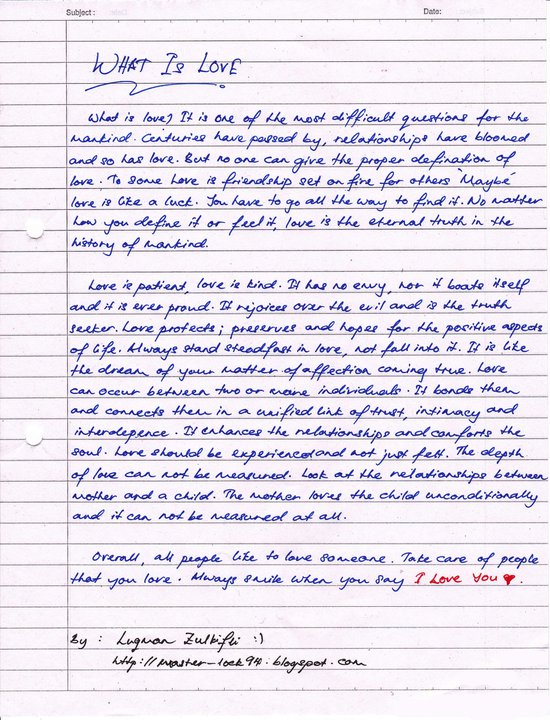 Subject: Date:
WHAT IS LOVE
What is love? It is one of the most difficult questions for the
mankind. Centuries have passed by, relationships have bloomed
and so has love. But no one can give the proper defination of
love. To some love is friendship set on fire for others 'Maybe'
love is like a luck. You have to go all the way to find it. No matter
how you define it or feel it, love is the eternal truth in the
history of mankind.
Love is patient, love is kind. It has no envy, nor it boats itself
and it is ever proud. It rejoices over the evil and is the truth
seeker. Love protects; preserves and hopes for the positive aspects
of life. Always stand steadfast in love, not fall into it. It is like
the dream of your matter of affection coming true. Love
can occur between two or more individuals. It bonds them
and connects them in a unified link of trust, intimacy and
interdepence. It enhances the relationships and comforts the
soul. Love should be experienced and not just felt. The depth
of love can not be measured. Look at the relationships between
mother and a child. The mother loves the child unconditionally
and it can not be measured at all.
Overall, all people like to love someone. Take care of people
that you love. Always smile when you say I Love You ♥.
By : Luqman Zulkifli :)
http://master-lock94.blogspot.com